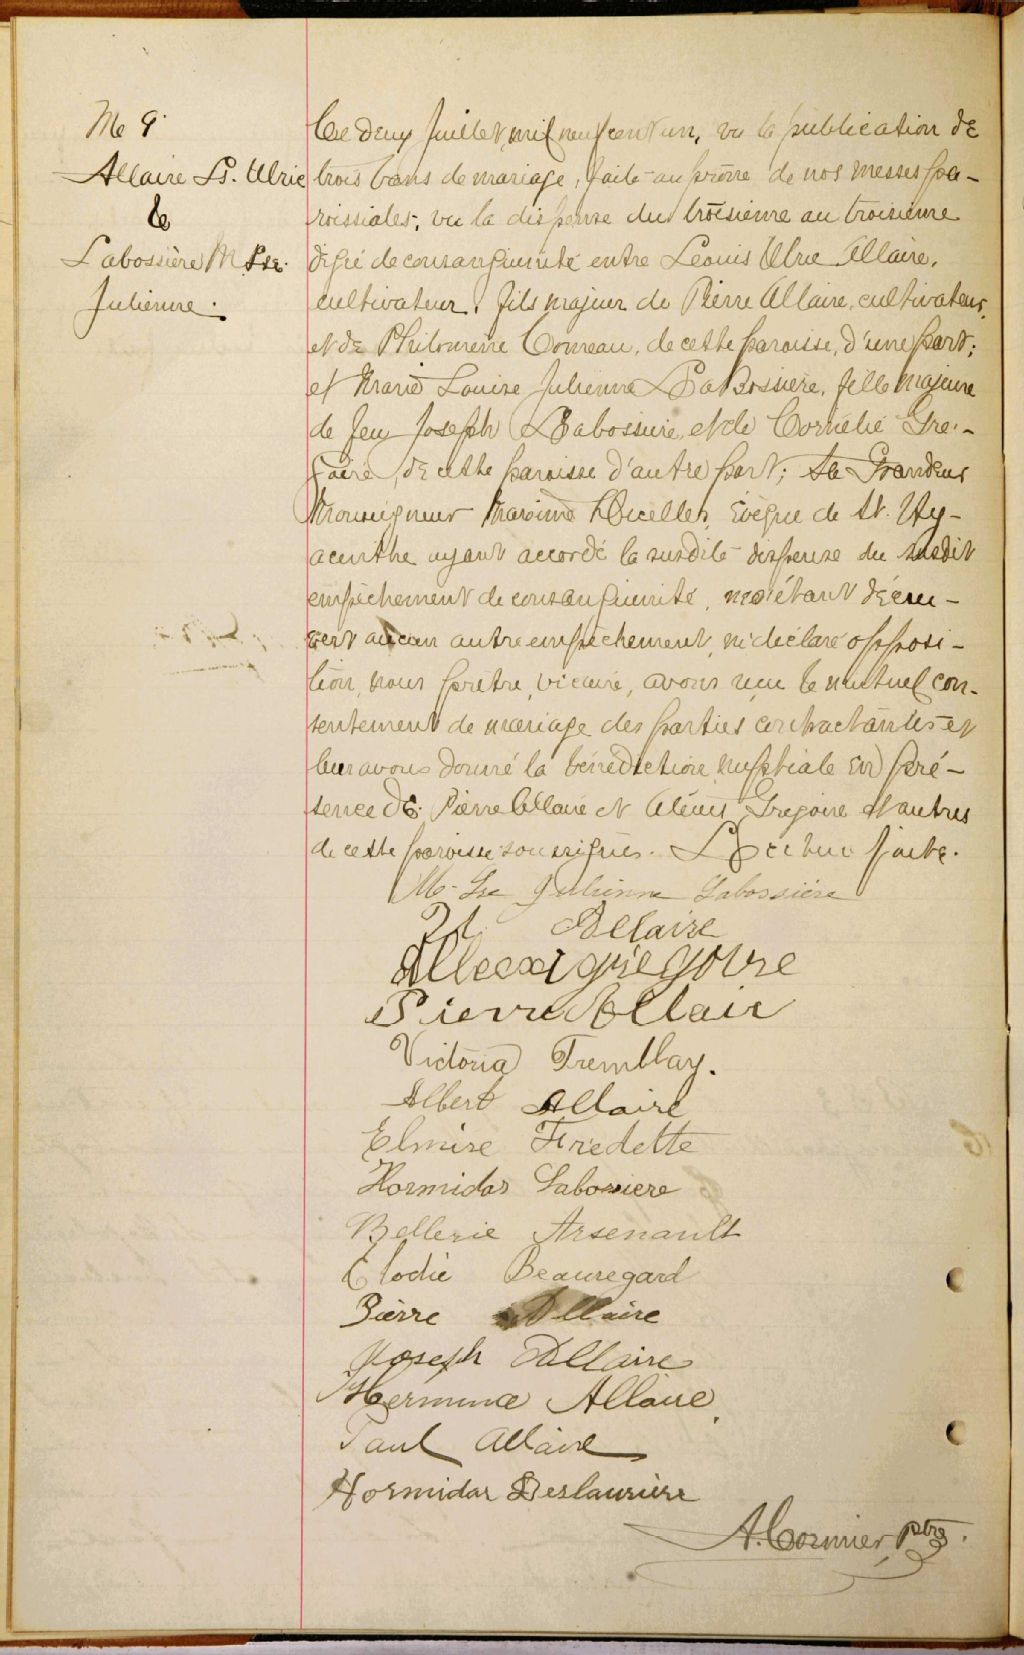 M 9.
Allaire Ls. Ulric
&
Labossière M. Lse.
Julienne.
Le deux Juillet, mil neuf cent un, vu la publication de
trois bans de mariage, faite au prône de nos messes pa-
roissiales; vu la dispense du troisième au troisième
degré de consanguinité entre Léouis Ulric Allaire,
cultivateur, fils majeur de Pierre Allaire, cultivateur,
et de Philomène Comeau, de cette paroisse, d'une part;
et Marie Louise Julienne LaBossière, fille majeure
de feu Joseph Labossière, et de Cornélie Gré-
goire, de cette paroisse d'autre part; Sa Grandeur
Monseigneur Maxime Decelles, Evêque de St. Hy-
acinthe ayant accordé la susdite dispense du susdit
empêchement de consanguinité, ne s'étant décou-
vert aucun autre empêchement, ni déclaré opposi-
tion, nous prêtre, vicaire, avons reçu le mutuel con-
sentement de mariage des parties contractantes et
leur avons donné la bénédiction nuptiale en pré-
sence de Pierre Allaire et Alexis Grégoire et autres
de cette paroisse soussignés. Lecture faite.
M. Lse Julienne Labossière
Allaire
Allexi grégoire
Pierre Allair
Victoria Tremblay.
Albert Allaire
Elmire Fredette
Hormidas Labossiere
Bellerie Arsenault
Elodie Beauregard
Pierre Allaire
Joseph Allaire
Hermine Allaire
Paul Allaire
Hormidas Deslauriere
A. Cormier, Ptre.